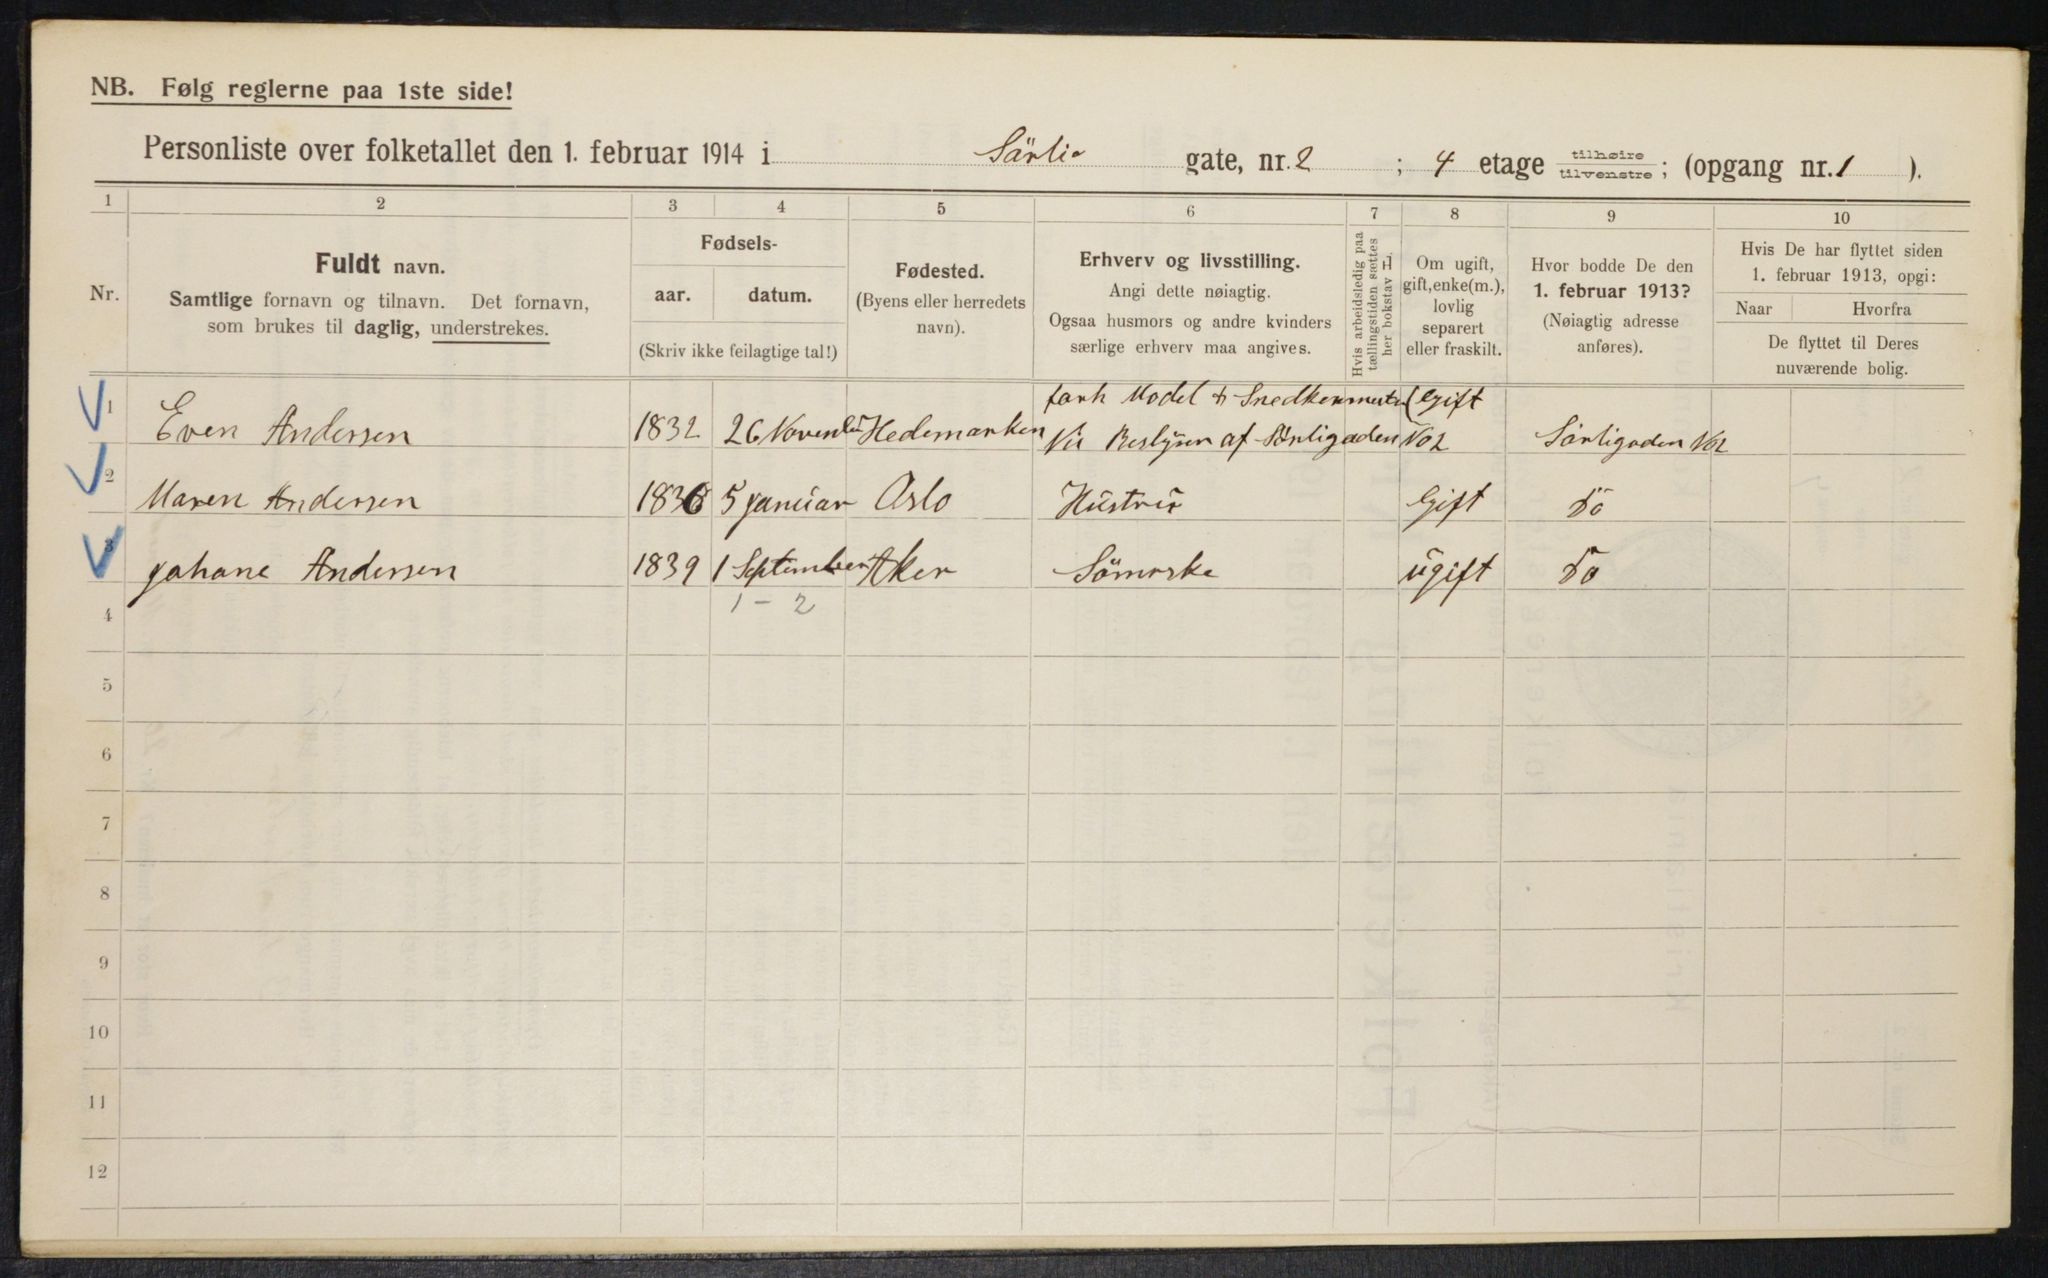 NB. Følg reglerne paa 1ste side!
Personliste over folketallet den 1. februar 1914 i Särlie gate, nr. 2 ; 4 etage tilhøire tilvenstre ; (opgang nr. 1 ).
1 2 3 4 5 6 7 8 9 10
Nr.
Fuldt navn.
Samtlige fornavn og tilnavn. Det fornavn,
som brukes til daglig, understrekes.
Fødsels-
aar. datum.
(Skriv ikke feilagtige tal!)
Fødested.
(Byens eller herredets
navn).
Erhverv og livsstilling.
Angi dette nøiagtig.
Ogsaa husmors og andre kvinders
særlige erhverv maa angives.
Hvis arbeidsledig paa
tællingstiden sættes
her bokstav L
Om ugift,
gift, enke(m.),
lovlig
separert
eller fraskilt.
Hvor bodde De den
1. februar 1913?
(Nøiagtig adresse
anføres).
Hvis De har flyttet siden
1. februar 1913, opgi:
Naar Hvorfra
De flyttet til Deres
nuværende bolig.
1 Even Andersen 1832 26 November Hedemarken forh Model & Snedkermester Gift
Beslyrer af Sörligaden No2 Sörligaden No2
2 Maren Andersen 1836 5 januar Oslo Hüstrü Gift Dö
3 Johane Andersen 1839 1 September Aker Sömerske ügift Dö
1 - 2
4
5
6
7
8
9
10
11
12